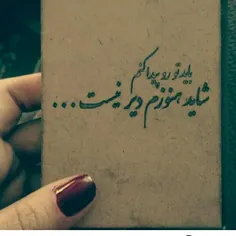 باید تو رو پیدا کنم
شاید هنوزم دیر نیست...